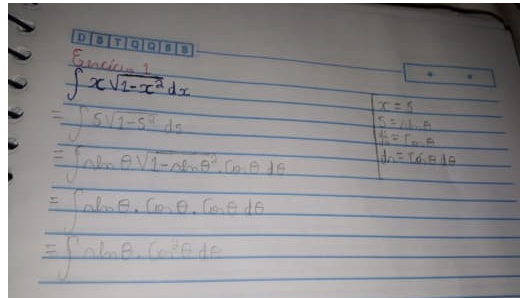 D S T Q Q S S
Exercício 1
∫ x√1-x² dx
= ∫ S√1-S² ds
= ∫ sen θ √1-sen θ² . Cos θ dθ
= ∫ sen θ . Cos θ . Cos θ dθ
= ∫ sen θ . Cos² θ dθ
x = S
S = sen θ
= Cos θ
= Cos θ dθ